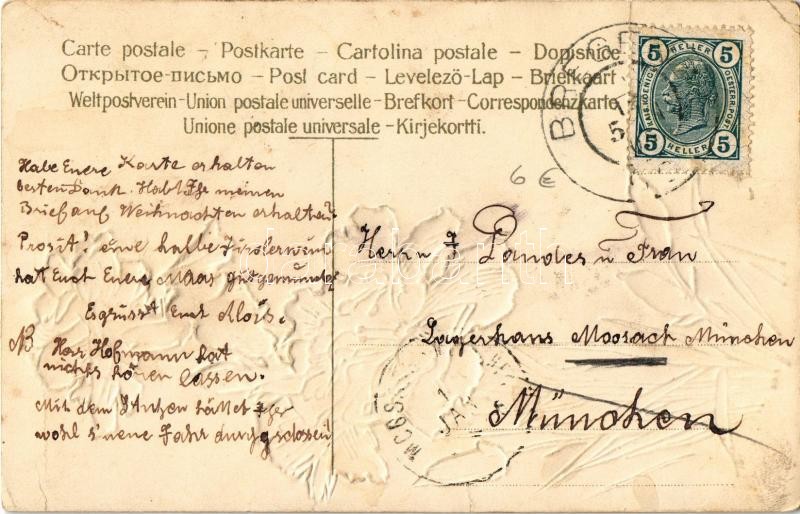 Carte postale – Postkarte – Cartolina postale – Dopisnice
Открытое-письмо – Post card – Levelező-Lap – Briefkaart
Weltpostverein-Union postale universelle-Brefkort-Correspondenzkarte
Unione postale universale-Kirjekortti.
5 HELLER 5
KAIS. KOENIGL. OESTERR. POST
5 HELLER 5
BREGE
6 €
Habe Euere Karte erhalten
besten Dank. Habt Ihr meinen
Brief auf Weihnachten erhalten?
Prosit! eine halbe Tirolerwein
hat Euch Euere Maas gutgemundet
Es grüsst Euch Alois.
NB Herr Hofmann hat
nichts hören lassen.
Mit dem Punsch hättet Ihr
wohl s'neue Jahr durchgschossen
Herrn J. Landes u Frau
Lagerhaus Moosach München
München
MOOSA
1
JAN